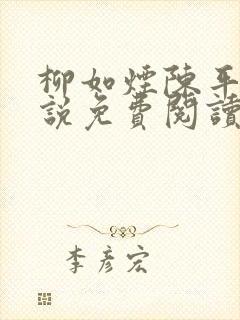 柳如煙陳平
說免費閱讀
李彥宏